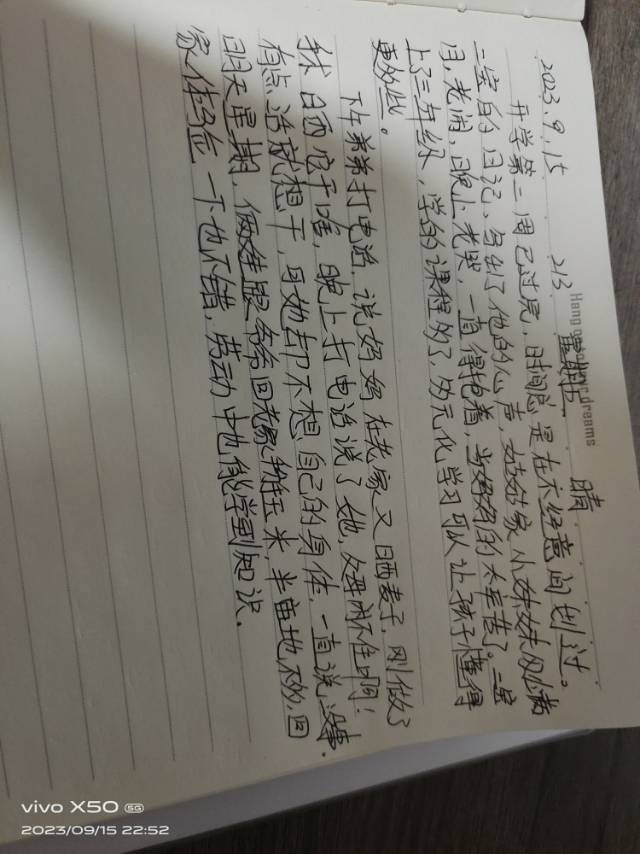 2023.9.15 213 星期五 晴
Hang dreams
开学第二周已过完，时间总是在不经意间划过。
二宝的日记，写出了他的心声，姑姑家小妹妹刚满
月，老闹，晚上老哭，一直得抱着，当妈妈的太辛苦了。二宝
上了三年级，学的课程多了，多元化学习可以让孩子懂得
更多些。
下午弟弟打电话，说妈妈在老家又晒麦子，刚做了
手术晒它干啥，晚上打电话说了她，闲不住啊！
有点活就想干，可她却不想自己的身体，一直说，没事。
明天星期，俩娃跟爷爷回老家掰玉米，半亩地，不多，回
家体验一下也不错，劳动中也能学到知识。
vivo X50 5G
2023/09/15 22:52